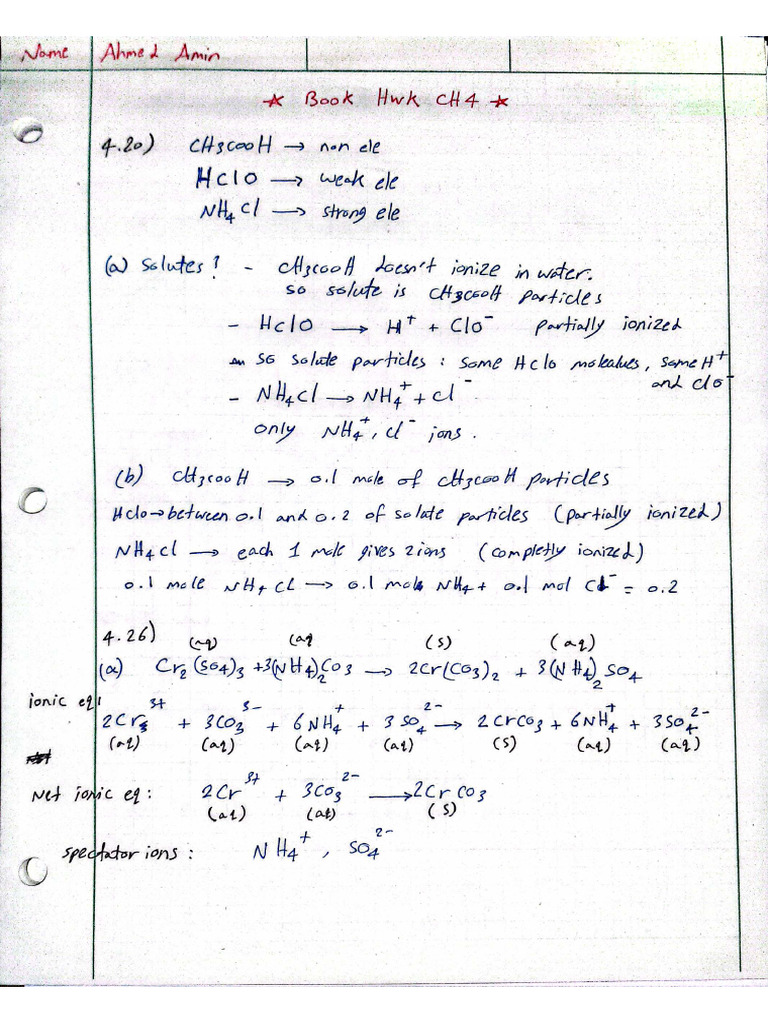 Name Ahmed Amin
* Book Hwk CH4 *
4.20) CH3COOH → non ele
HClO → weak ele
NH4Cl → strong ele
(a) Solutes? - CH3COOH doesn't ionize in water.
so solute is CH3COOH particles
- HClO → H⁺ + ClO⁻ partially ionized
so solute particles : some HClO molealues, some H⁺
and ClO⁻
- NH4Cl → NH4⁺ + Cl⁻
only NH4⁺, Cl⁻ ions.
(b) CH3COOH → 0.1 mole of CH3COOH particles
HClO → between 0.1 and 0.2 of solate particles (partially ionized)
NH4Cl → each 1 mole gives 2 ions (completly ionized)
0.1 mole NH4CL → 0.1 mole NH4 + 0.1 mol Cl⁻ = 0.2
4.26) (aq) (aq (s) (aq)
(a) Cr2(SO4)3 + 3(NH4)2CO3 → 2Cr(CO3)2 + 3(NH4)2SO4
ionic eq:
2Cr3³⁺ + 3CO3³⁻ + 6NH4⁺ + 3SO4²⁻ → 2CrCO3 + 6NH4⁺ + 3SO4²⁻
(aq) (aq) (aq) (aq) (s) (aq) (aq)
Net ionic eq: 2Cr³⁺ + 3CO3²⁻ → 2CrCO3
(aq) (aq) (s)
spectator ions : NH4⁺, SO4²⁻